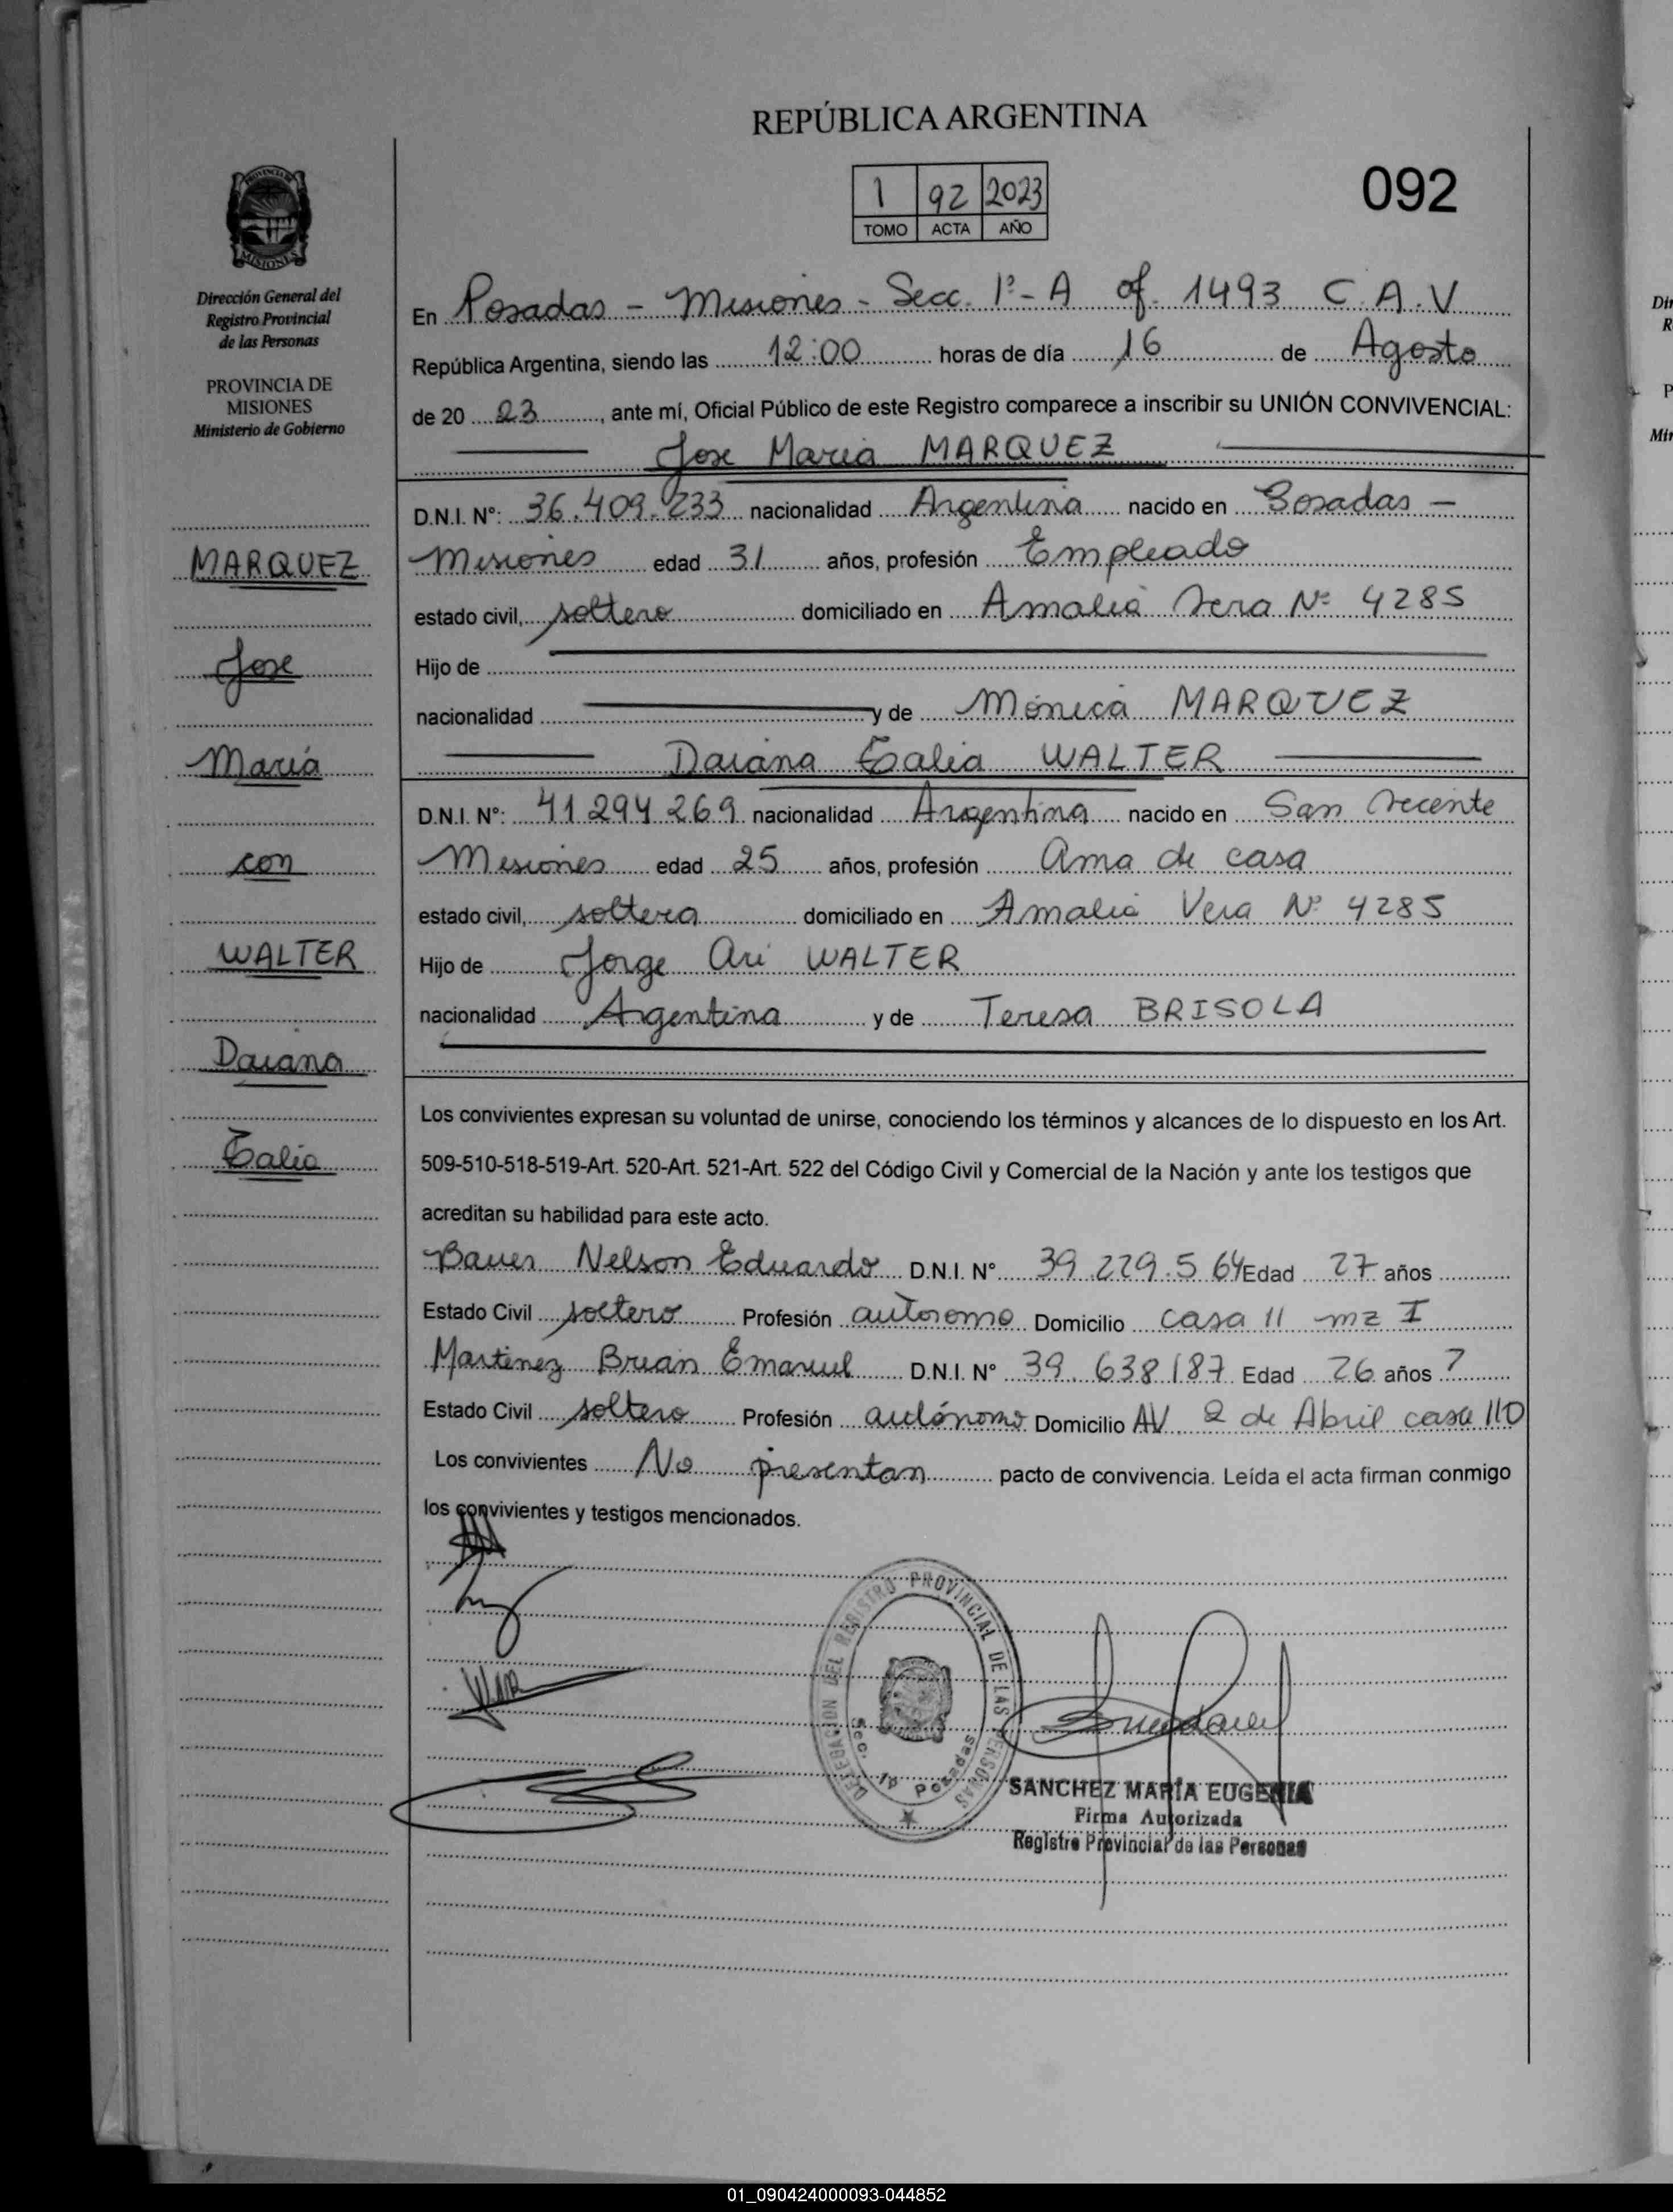 REPÚBLICA ARGENTINA
1 92 2023
TOMO ACTA AÑO
092
PROVINCIA DE
MISIONES
Dirección General del
Registro Provincial
de las Personas
PROVINCIA DE
MISIONES
Ministerio de Gobierno
MARQUEZ
Jose
María
con
WALTER
Daiana
Talia
En Posadas - Misiones - Secc. 1º - A of. 1493 C.A.V
República Argentina, siendo las 12:00 horas de día 16 de Agosto
de 20 23, ante mí, Oficial Público de este Registro comparece a inscribir su UNIÓN CONVIVENCIAL:
Jose Maria MARQUEZ
D.N.I. Nº: 36.409.233 nacionalidad Argentina nacido en Posadas -
Misiones edad 31 años, profesión Empleado
estado civil, soltero domiciliado en Amalia Vera Nº 4285
Hijo de
nacionalidad y de Mónica MARQUEZ
Daiana Talia WALTER
D.N.I. Nº: 41.294.269 nacionalidad Argentina nacido en San Vicente
Misiones edad 25 años, profesión Ama de casa
estado civil, soltera domiciliado en Amalia Vera Nº 4285
Hijo de Jorge Ari WALTER
nacionalidad Argentina y de Teresa BRISOLA
Los convivientes expresan su voluntad de unirse, conociendo los términos y alcances de lo dispuesto en los Art.
509-510-518-519-Art. 520-Art. 521-Art. 522 del Código Civil y Comercial de la Nación y ante los testigos que
acreditan su habilidad para este acto.
Bauer Nelson Eduardo D.N.I. Nº 39.229.564 Edad 27 años
Estado Civil soltero Profesión autonomo Domicilio casa 11 mz I
Martinez Brian Emanuel D.N.I. Nº 39.638187 Edad 26 años 7
Estado Civil soltero Profesión autónomo Domicilio AV. 2 de Abril casa 110
Los convivientes No presentan pacto de convivencia. Leída el acta firman conmigo
los convivientes y testigos mencionados.
DELEGACION DEL REGISTRO PROVINCIAL DE LAS PERSONAS
Sec. 1ª Posadas
SANCHEZ MARÍA EUGENIA
Firma Autorizada
Registro Provincial de las Personas
01_090424000093-044852